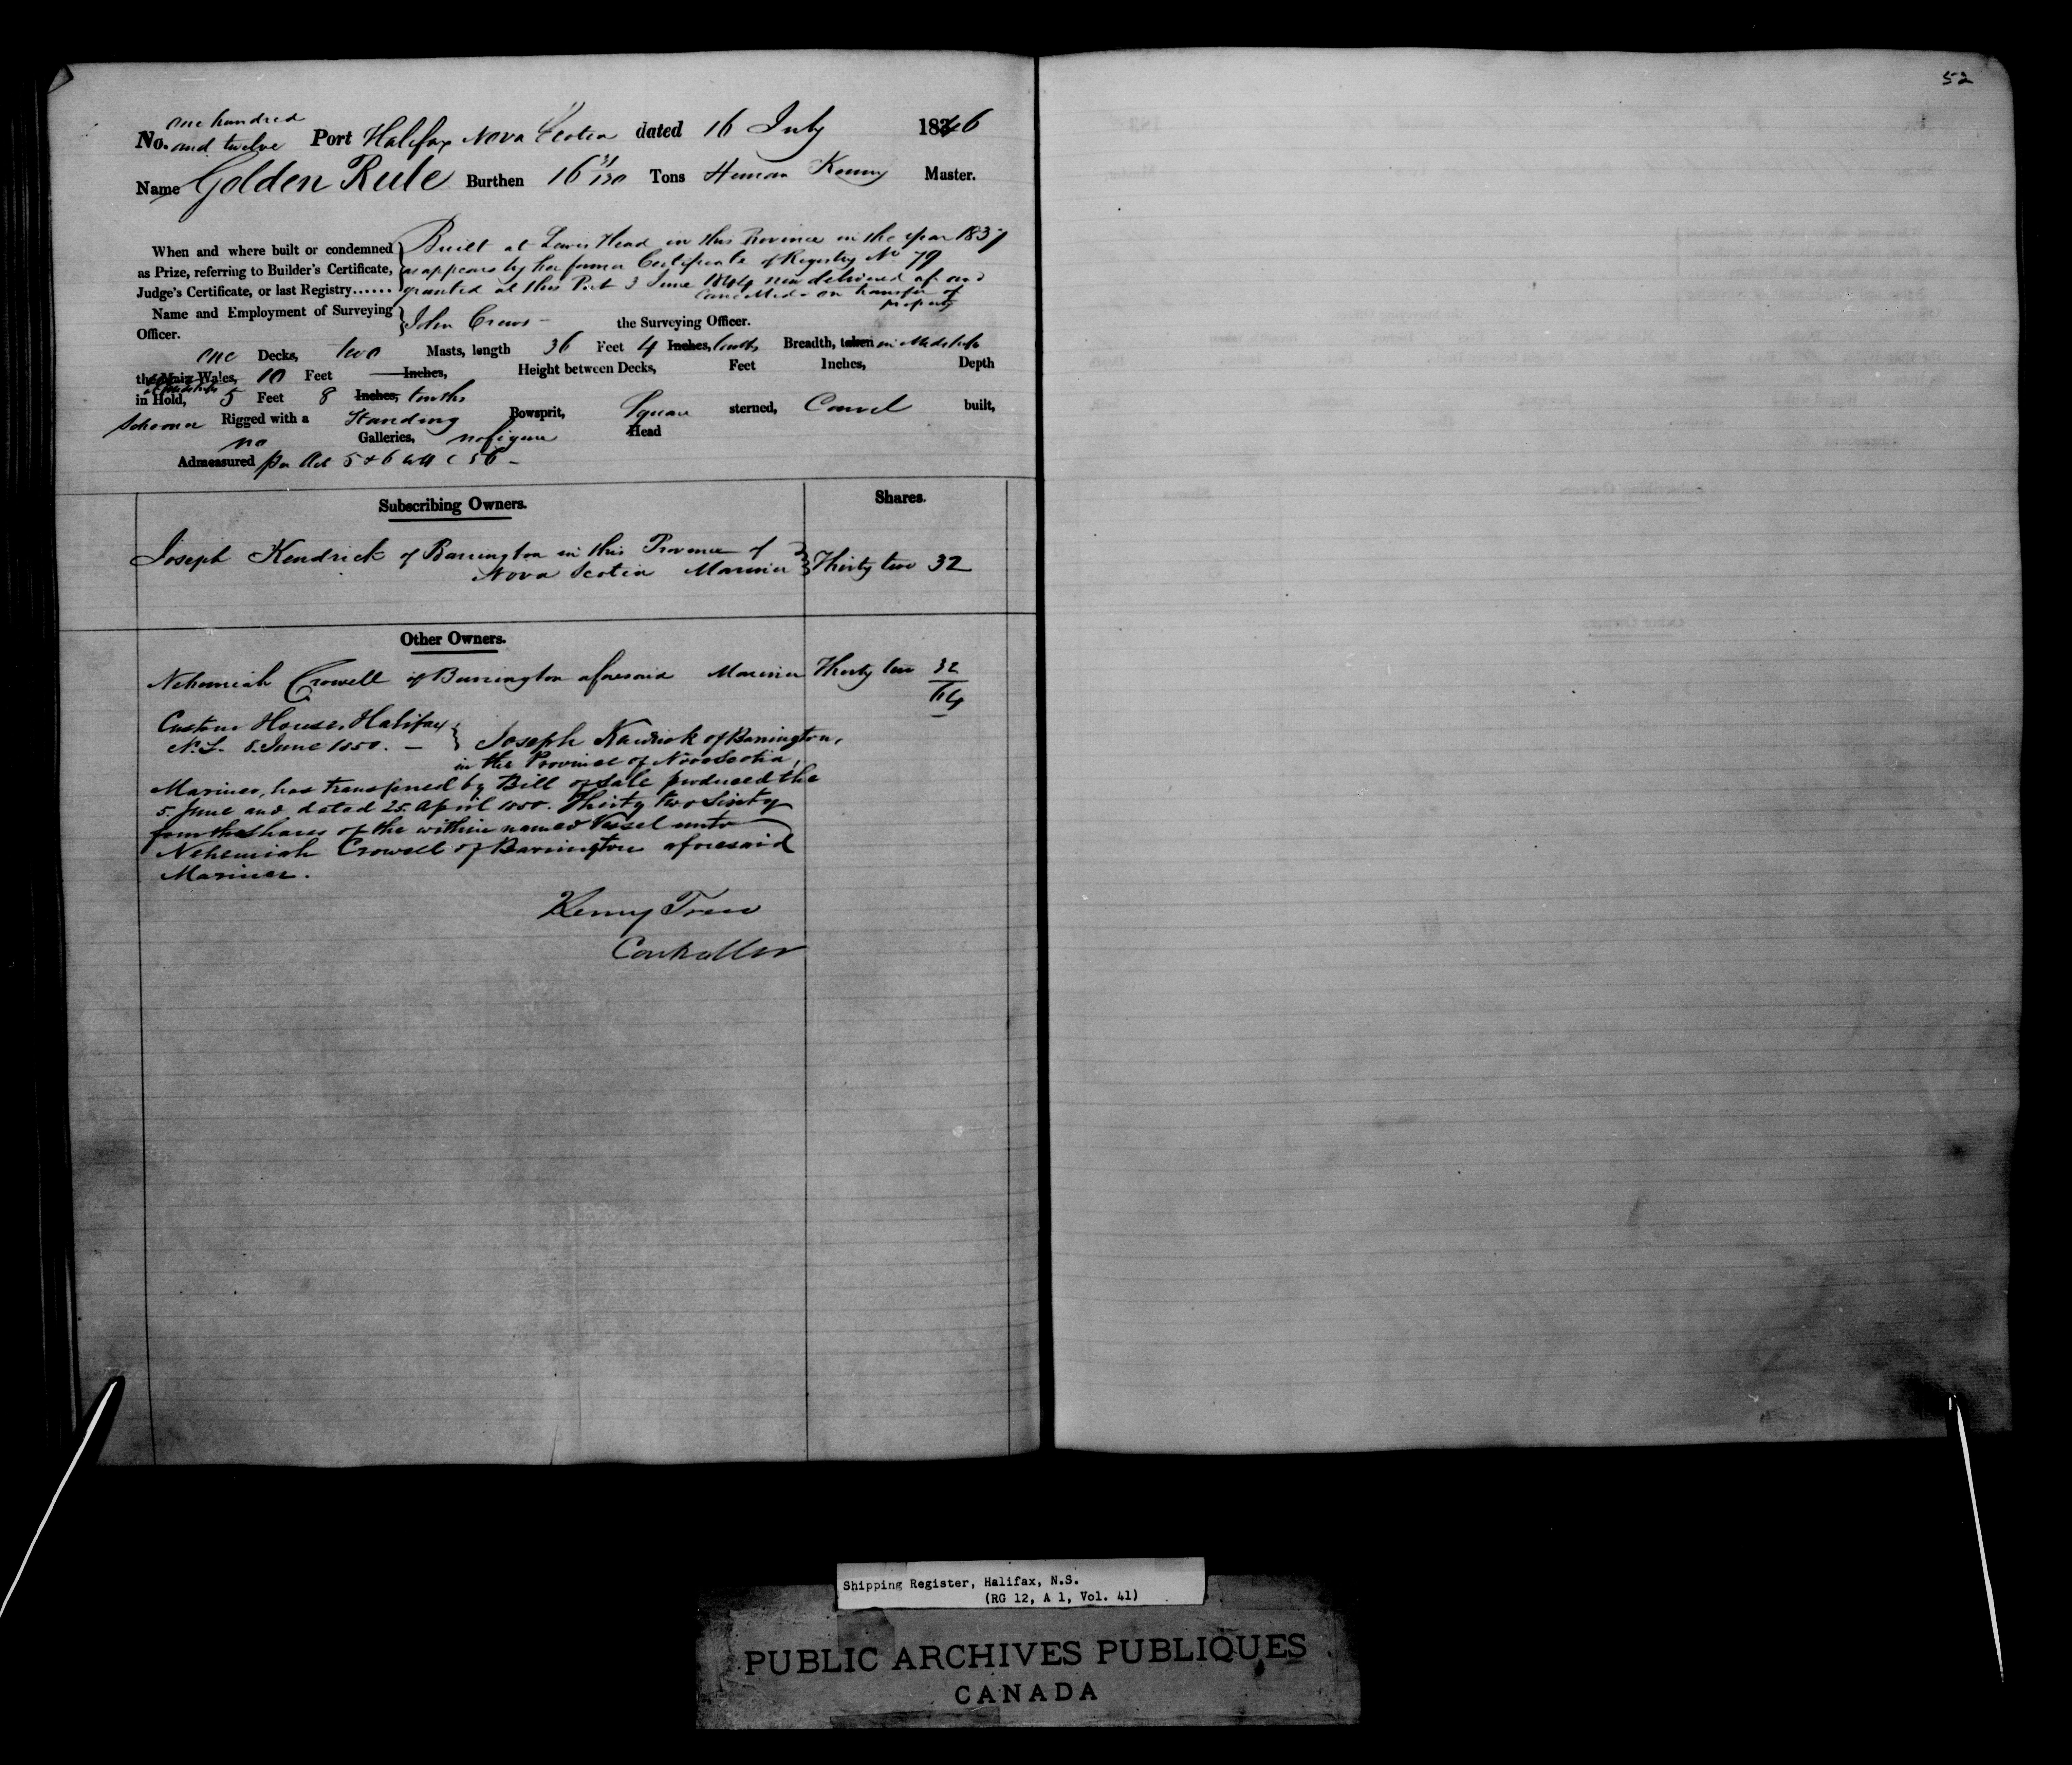 52
one hundred
No. and twelve Port Halifax Nova Scotia dated 16 July 1846
Name Golden Rule Burthen 16 31/130 Tons Heman Kenny Master.
When and where built or condemned Built at Lewis Head in this Province in the year 1837
as Prize, referring to Builder's Certificate, as appears by her former Certificate of Registry No 79
Judge's Certificate, or last Registry...... granted at this Port 3 June 1844 now delivered up and
Cancelled on transfer of
property
Name and Employment of Surveying
Officer. John Crews the Surveying Officer.
one Decks, two Masts, length 36 Feet 4 Inches, tenths Breadth, taken in Midships
the Main Wales, 10 Feet Inches, Height between Decks, Feet Inches, Depth
at Midships
in Hold, 5 Feet 8 Inches, tenths
Schooner Rigged with a Standing Bowsprit, Square sterned, Carvel built,
no Galleries, no figure Head
Admeasured per Act 5 & 6 W 4 C 56 -
Subscribing Owners. Shares.
Joseph Kendrick of Barrington in this Province of
Nova Scotia Mariner Thirty two 32
Other Owners.
Nehemiah Crowell of Barrington aforesaid Mariner Thirty two 32
64
Custom House, Halifax
N.S. 5. June 1850. — Joseph Kendrick of Barrington,
in the Province of Nova Scotia,
Mariner, has transferred by Bill of Sale produced the
5. June and dated 25. April 1850. Thirty two Sixty
fourths Shares of the within named Vessel unto
Nehemiah Crowell of Barrington aforesaid
Mariner.
Henry Trew
Controller
Shipping Register, Halifax, N.S.
(RG 12, A 1, Vol. 41)
PUBLIC ARCHIVES PUBLIQUES
CANADA